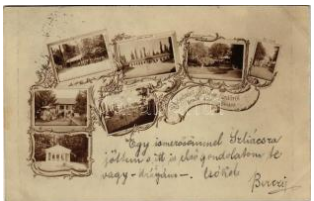 Egy ismerősömmel Szliácsra
jöttem s itt is első gondolatom te
vagy - drágám -. Csókol